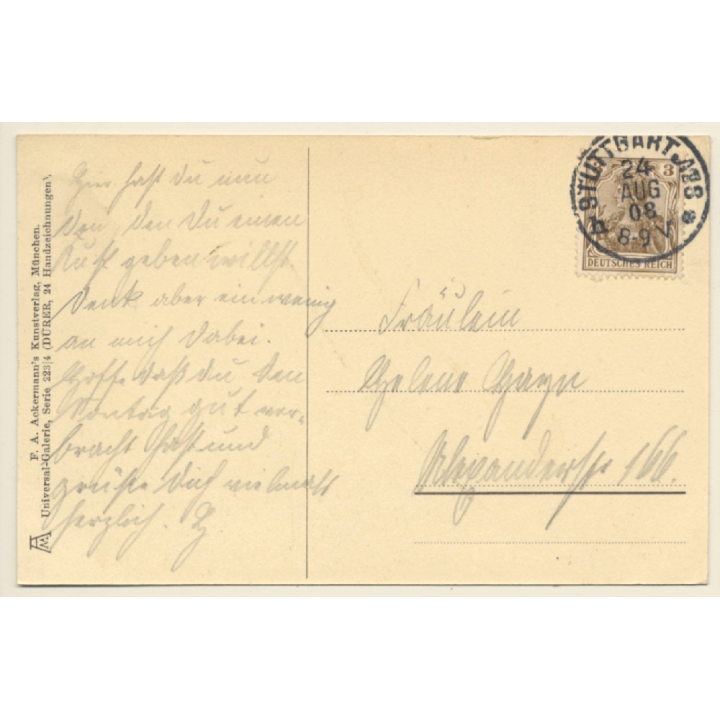 Hier hast du nun
den, den Du einen
Kuß geben willst.
Denk aber ein wenig
an mich dabei.
Hoffe daß du den
Sonntag gut ver-
bracht hast und
grüße Dich vielmals
herzlich.
F. A. Ackermann's Kunstverlag, München.
Universal-Galerie, Serie 223/4 (DÜRER, 24 Handzeichnungen).
STUTTGART
24
AUG
08
8-9 V
3
DEUTSCHES REICH
Fräulein
Helene
Alexanderstr 166.